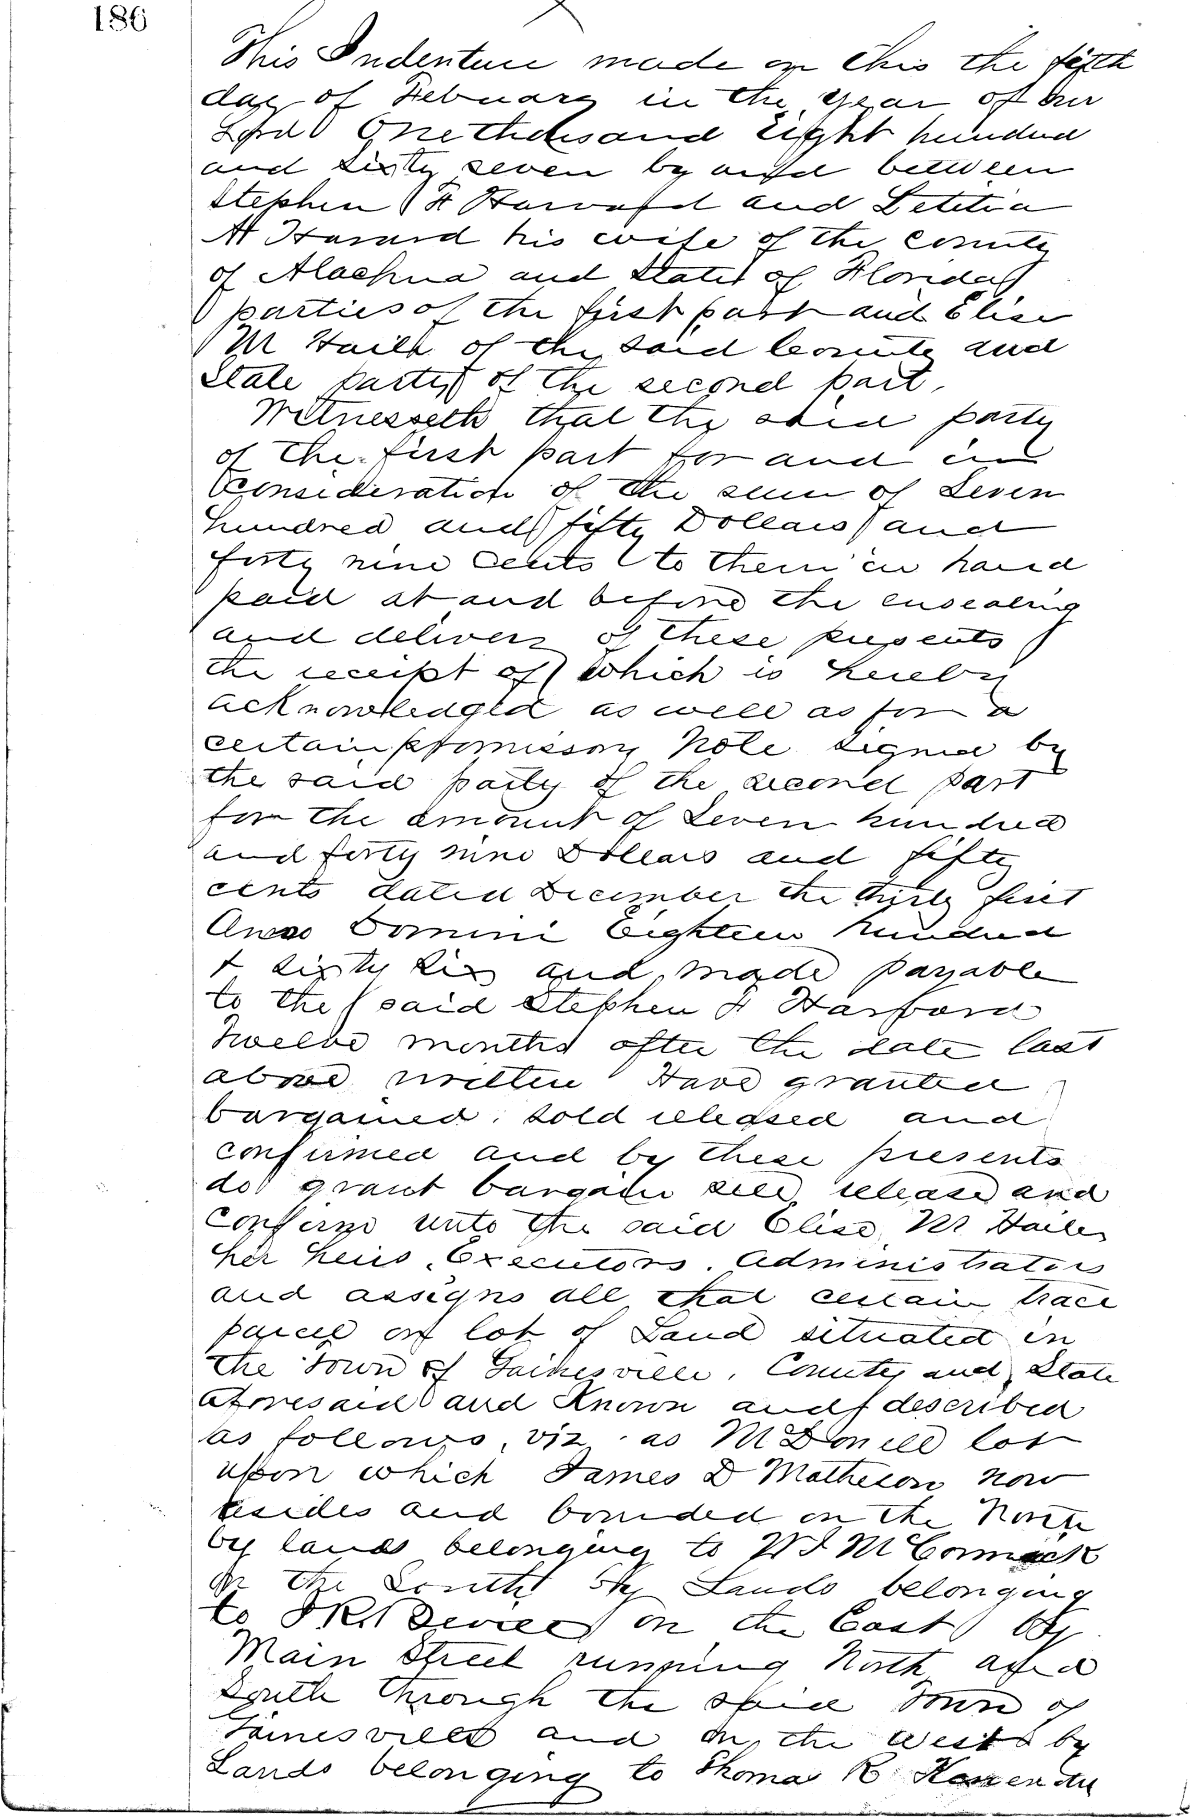 186
This Indenture made on this the fifth
day of February in the year of our
Lord One thousand Eight hundred
and Sixty seven by and between
Stephen F Harvard and Letitia
A Havard his wife of the County
of Alachua and State of Florida
parties of the first part and Elise
M Haile of the said County and
State party of the second part.
Witnesseth that the said party
of the first part for and in
Consideration of the sum of Seven
hundred and fifty Dollars and
forty nine Cents to them in hand
paid at and before the ensealing
and delivery of these presents
the receipt of which is hereby
acknowledged as well as for a
certain promissory Note signed by
the said party of the second part
for the amount of Seven hundred
and forty nine Dollars and fifty
cents dated December the thirty first
Anno Domini Eighteen hundred
& sixty six and made payable
to the said Stephen F
Twelve months after the date last
above written Have granted
bargained. sold released and
confirmed and by these presents
do grant bargain sell release and
Confirm unto the said Elise M Haile
her heirs. Executors. Administrators
and assigns all that certain tract
parcel or lot of Land situated in
the Town of Gainesville. County and State
aforesaid and Known and described
as follows, viz. as McDonell lot
upon which James D Matheson now
resides and bounded on the North
by lands belonging to McCormack
on the South by Lands belonging
to on the East by
Main Street running North and
South through the said Town of
Gainesville and on the West by
Lands belonging to Thomas R